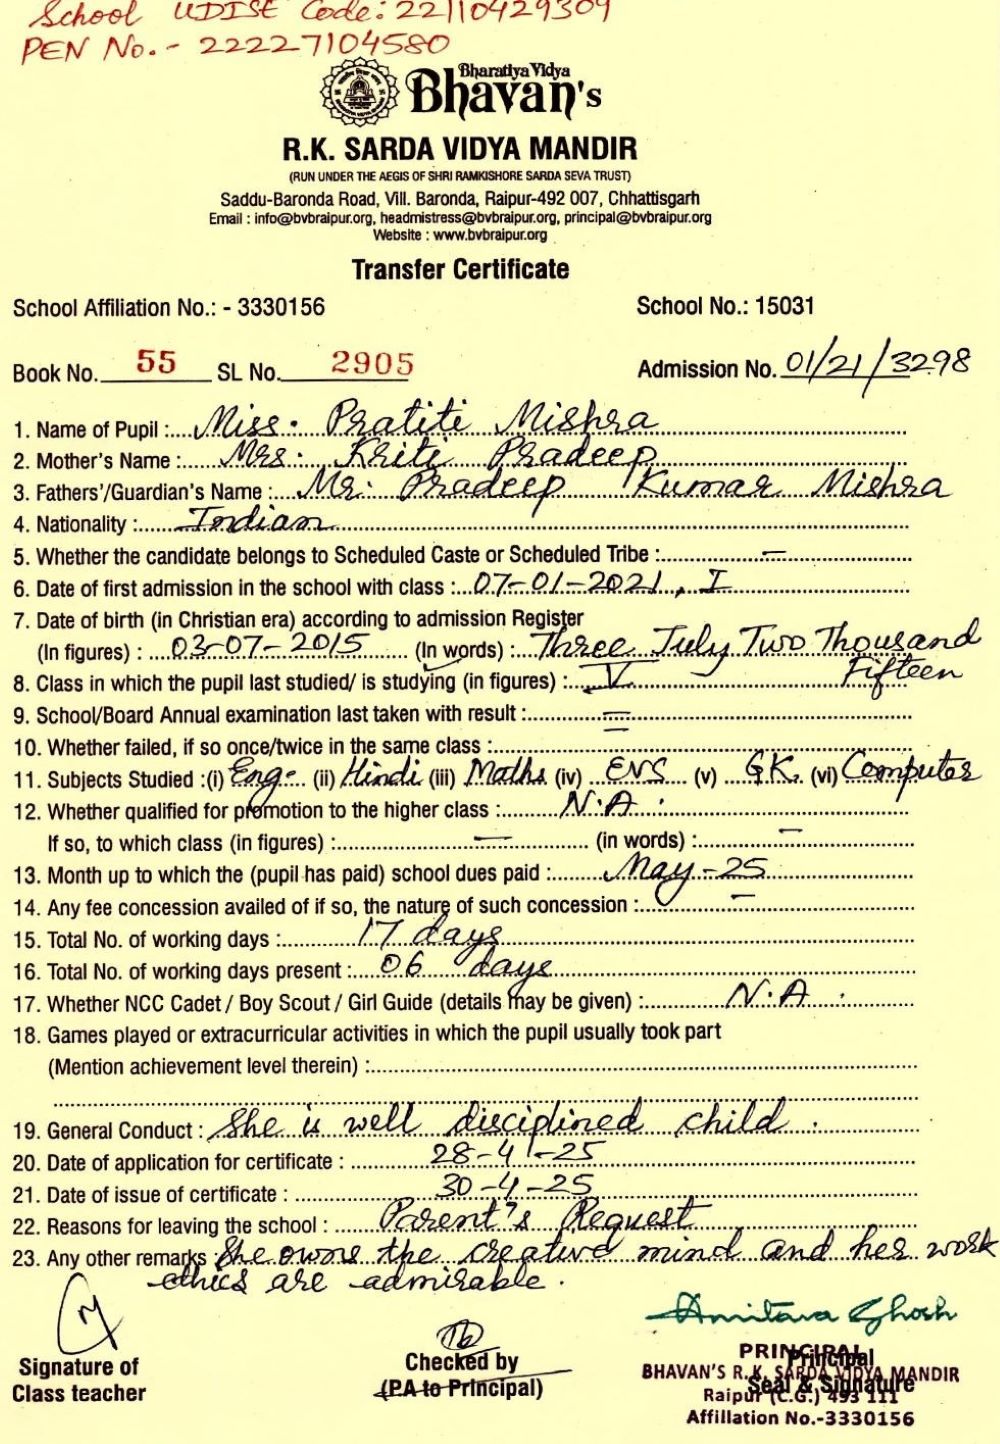 School UDISE Code: 22110429309
PEN No. - 22227104580
Bharatiya Vidya
Bhavan's
R.K. SARDA VIDYA MANDIR
(RUN UNDER THE AEGIS OF SHRI RAMKISHORE SARDA SEVA TRUST)
Saddu-Baronda Road, Vill. Baronda, Raipur-492 007, Chhattisgarh
Email : info@bvbraipur.org, headmistress@bvbraipur.org, principal@bvbraipur.org
Website : www.bvbraipur.org
Transfer Certificate
School Affiliation No.: - 3330156 School No.: 15031
Book No. 55 SL No. 2905 Admission No. 01/21/3298
1. Name of Pupil : Miss. Pratiti Mishra
2. Mother's Name : Mrs. Kriti Pradeep
3. Fathers'/Guardian's Name : Mr. Pradeep Kumar Mishra
4. Nationality : Indian
5. Whether the candidate belongs to Scheduled Caste or Scheduled Tribe : —
6. Date of first admission in the school with class : 07-01-2021, I
7. Date of birth (in Christian era) according to admission Register
(In figures) : 03-07-2015 (In words) : Three July Two Thousand
Fifteen
8. Class in which the pupil last studied/ is studying (in figures) : V
9. School/Board Annual examination last taken with result : —
10. Whether failed, if so once/twice in the same class : —
11. Subjects Studied :(i) Eng- (ii) Hindi (iii) Maths (iv) EVS (v) GK. (vi) Computer
12. Whether qualified for promotion to the higher class : N.A.
If so, to which class (in figures) : — (in words) : —
13. Month up to which the (pupil has paid) school dues paid : May-25
14. Any fee concession availed of if so, the nature of such concession : —
15. Total No. of working days : 17 days
16. Total No. of working days present : 06 days
17. Whether NCC Cadet / Boy Scout / Girl Guide (details may be given) : N.A.
18. Games played or extracurricular activities in which the pupil usually took part
(Mention achievement level therein) :
19. General Conduct : She is well disciplined child.
20. Date of application for certificate : 28-4-25
21. Date of issue of certificate : 30-4-25
22. Reasons for leaving the school : Parent's Request
23. Any other remarks : She owns the creative mind and her work
ethics are admirable.
Amitava Ghosh
Signature of
Class teacher
Checked by
(P.A to Principal)
Principal
Seal & Signature
PRINCIPAL
BHAVAN'S R.K. SARDA VIDYA MANDIR
Raipur (C.G.) 493 111
Affillation No.-3330156